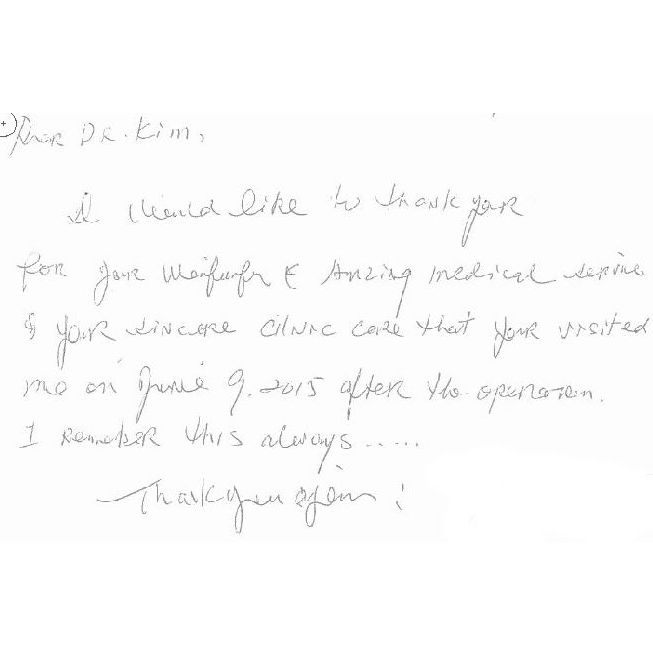 Dear DR. Kim,
I would like to thank your
for your & Amzing medical service
& your sincere clinic care that your visited
me on June 9, 2015 after the operation.
I remeber this always.....
Thank you again!